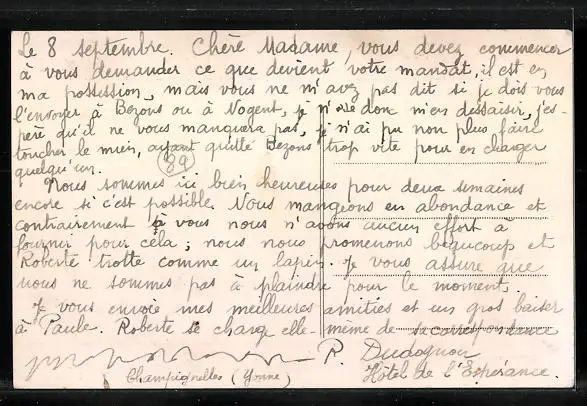 Le 8 septembre. Chère Madame, vous devez commencer
à vous demander ce que devient votre mandat, il est en
ma possession, mais vous ne m'avez pas dit si je dois vous
l'envoyer à Bezons ou à Nogent, je n'ose donc m'en dessaisir, j'es-
père qu'il ne vous manquera pas, je n'ai pu non plus faire
toucher le mien, ayant quitté Bezons trop vite pour en charger
quelqu'un. 89
Nous sommes ici bien heureuses pour deux semaines
encore si c'est possible. Nous mangeons en abondance et
contrairement à vous nous n'avons aucun effort à
fournir pour cela; nous nous promenons beaucoup et
Roberte trotte comme un lapin. Je vous assure que
nous ne sommes pas à plaindre pour le moment.
Je vous envoie mes meilleures amitiés et un gros baiser
à Paule. Roberte se charge elle-même de sa correspondance
R. Dudognon
Champignelles (Yonne) Hôtel de l'Espérance.